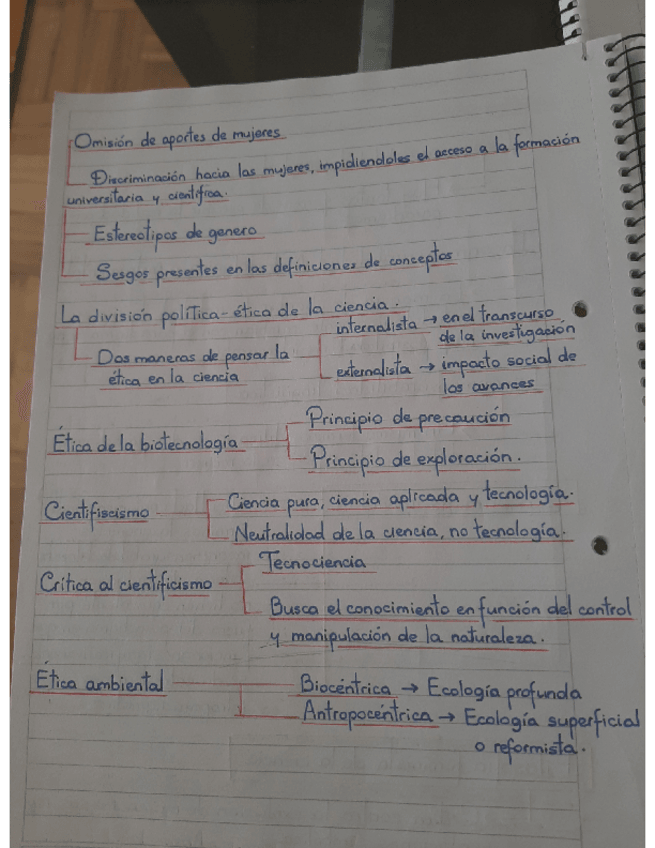 Omisión de aportes de mujeres
Discriminación hacia las mujeres, impidiendoles el acceso a la formación
universitaria y científica.
Estereotipos de genero
Sesgos presentes en las definiciones de conceptos
La división política-ética de la ciencia.
Dos maneras de pensar la
ética en la ciencia
internalista → en el transcurso
de la investigación
externalista → impacto social de
los avances
Ética de la biotecnología
Principio de precaución
Principio de exploración.
Cientifiscismo
Ciencia pura, ciencia aplicada y tecnología.
Neutralidad de la ciencia, no tecnología.
Crítica al cientificismo
Tecnociencia
Busca el conocimiento en función del control
y manipulación de la naturaleza.
Ética ambiental
Biocéntrica → Ecología profunda
Antropocéntrica → Ecología superficial
o reformista.